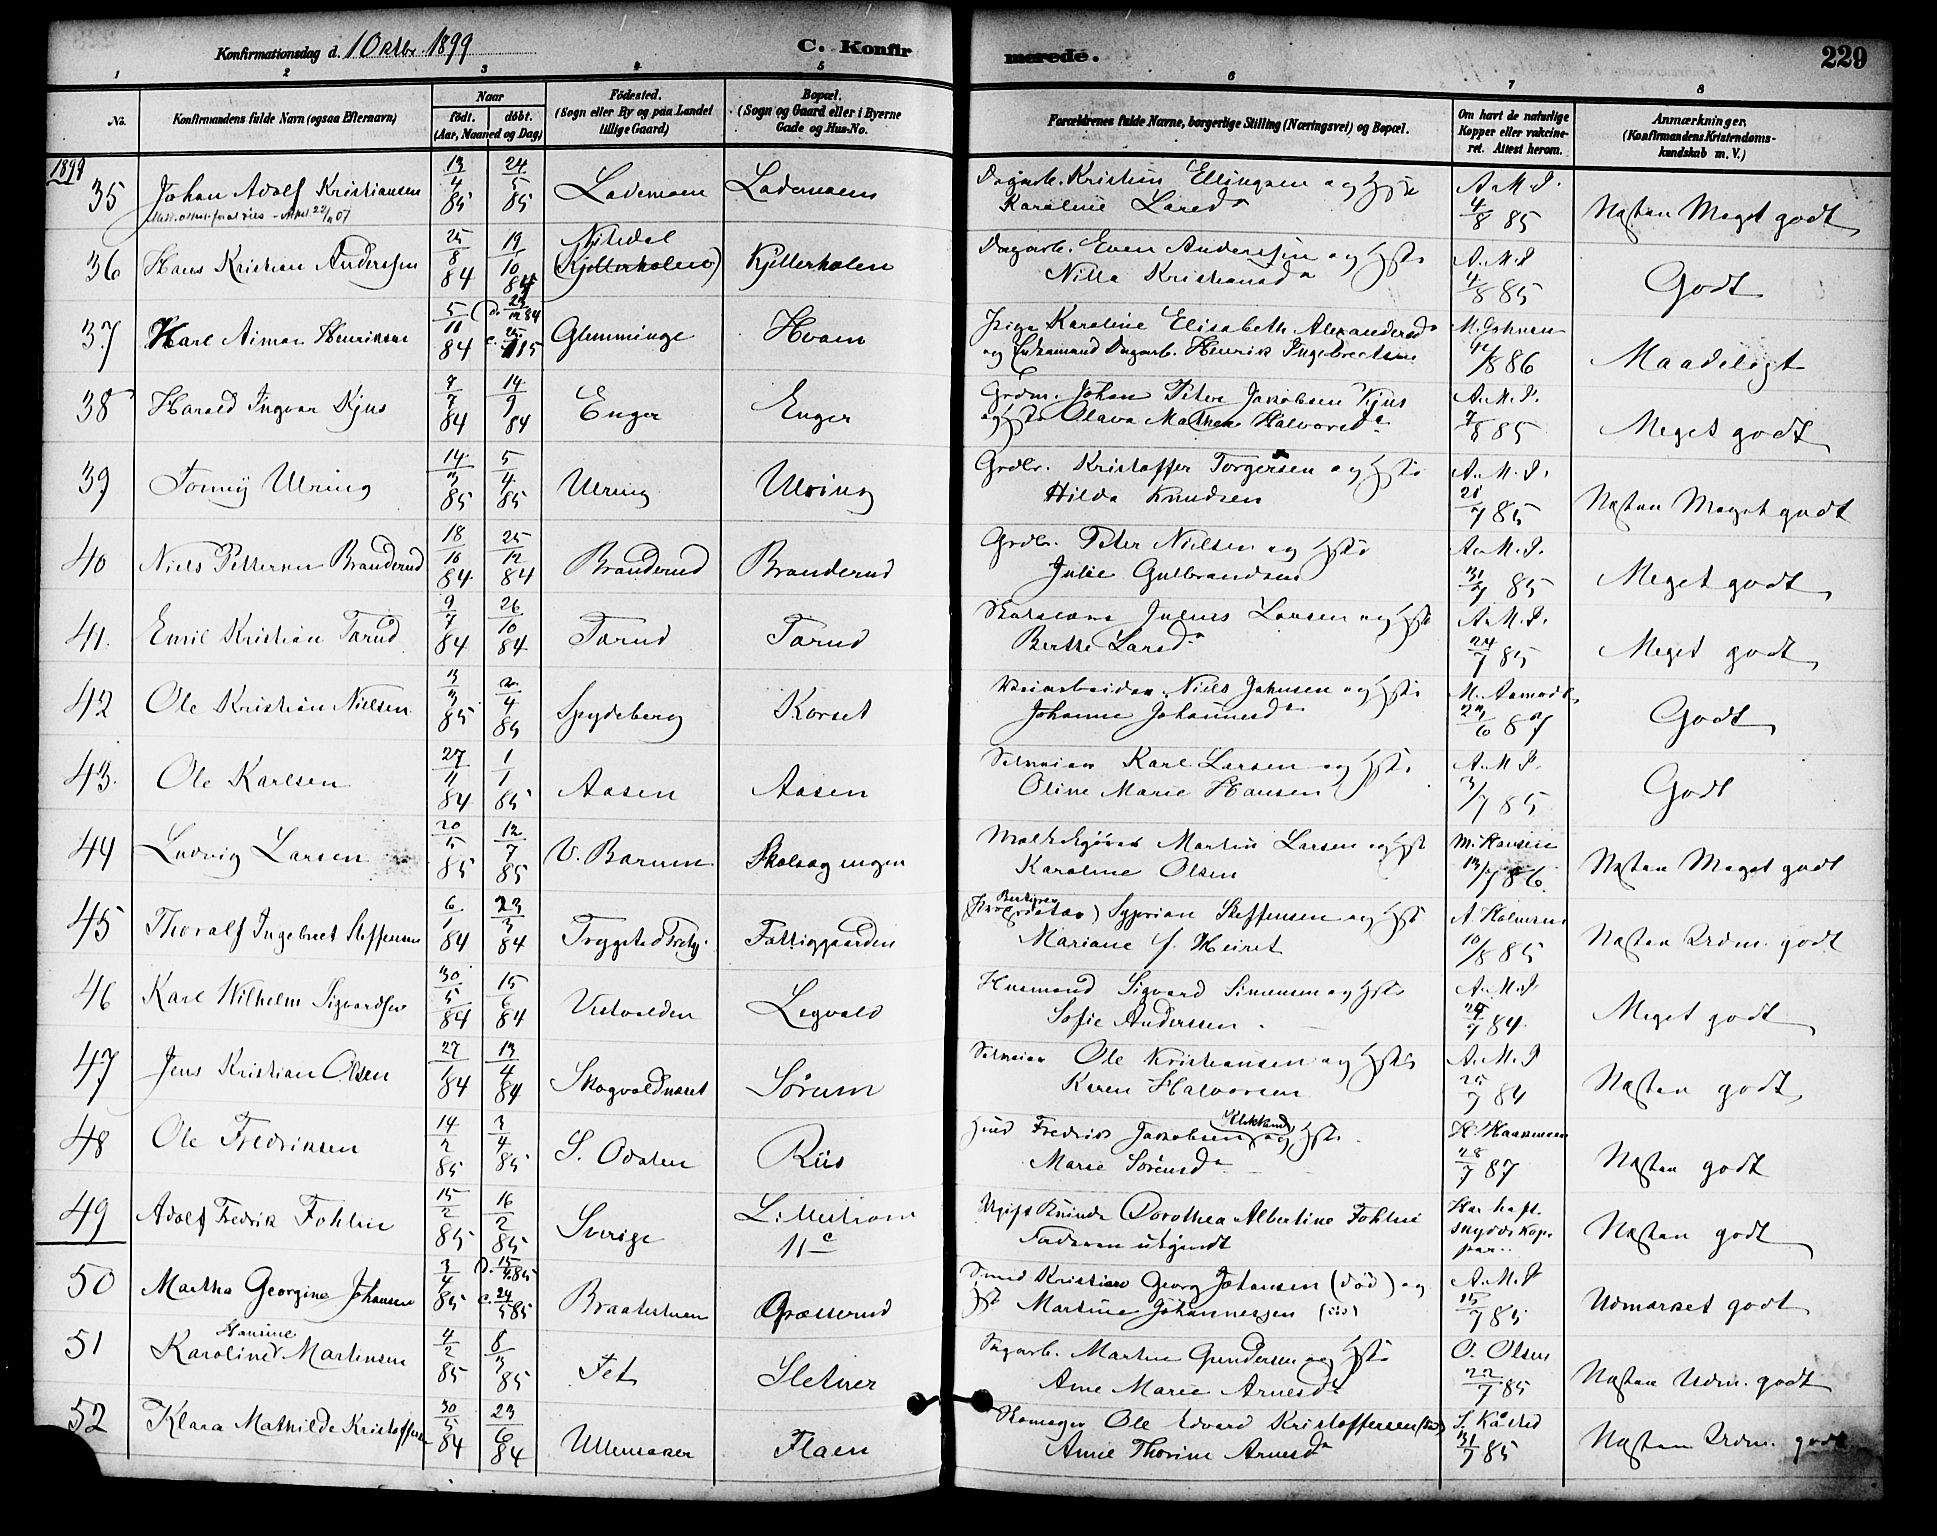 Konfirmationsdag d. 1 Oktbr. 1899
C. Konfirmerede.
229
1 2 3 4 5 6 7 8
No.
Konfirmandens fulde Navn (ogsaa Efternavn)
Naar
født. døbt.
(Aar, Maaned og Dag)
Födested.
(Sogn eller By og paa Landet
tillige Gaard)
Bopæl.
(Sogn og Gaard eller i Byerne
Gade og Hus-No.
Forældrenes fulde Navne, borgerlige Stilling (Næringsvei) og Bopæl.
Om havt de naturlige
Kopper eller vakcine-
ret. Attest herom.
Anmærkninger,
(Konfirmandens Kristendoms-
kundskab m. V.)
1899
35 Johan Adolf Kristiansen 13/4 85 24/5 85 Lademoen Lademoen Dagarb. Kristian Ellingsen og Hst Karoline Larsd. A.M.I. 4/8 85 Næsten Meget godt
36 Hans Kristian Anderssen 25/8 84 19/10 84 Nitedal (Kjellerholen) Kjellerholen Dagarb. Even Anderssen og Hst Kristiansd. A.M.I. 4/8 85 Godt
37 Karl Henriksen 5/11 84 Glemminge Hvam Pige Karoline Elisabeth Alexandersd. og Enkemand Dagarb. Henrik Ingebretsen 86 Maadeligt
38 Harald Ingvar Kjus 7/7 84 14/9 84 Enger Enger Grdm. Johan Peter Jakobsen Kjus og Hst Olava Mathea Halvorsd. A.M.I. 7/8 85 Meget godt
39 Ulring 14/3 85 5/4 85 Ulring Ulring Grdbr. Kristoffer Torgersen og Hst Hilda Knudsen A.M.I. 21/7 85 Næsten Meget godt
40 Niels Petterner Branderud 18/10 84 25/12 84 Branderud Branderud Grdbr. Peter Nielsen og Hst Julie Gulbrandsen A.M.I. 31/7 85 Meget godt
41. Emil Kristian Tarud 9/7 84 26/10 84 Tarud Tarud Julius Larsen og Hst Berthe Larsd. A.M.I. 24/7 85 Meget godt
42 Ole Kristian Nielsen 3/3 85 2/4 85 Spydeberg Korset Veiarbeider Niels Johnsen og Hst Johanne Johannesd. 87 Godt
43. Ole Karlsen 27/11 84 1/1 85 Aasen Aasen Selveier Karl Larsen og Hst Oline Marie Hansen A.M.I. 3/7 85 Godt
44 Ludvig Larsen 20/5 85 12/7 85 V. Bærum Martin Larsen og Hst Karoline Olsen M. Hansen 13/7 86. Næsten Meget godt
45 Thoralf Ingebret Steffensen 6/1 84 23/3 84 Trygstad Fattiggaarden Syprian Steffensen og Hst Mariane f. A. Holmsen 10/8 85 Næsten Udm. godt
46 Karl Wilhelm Sigvardsen 30/5 84 15/6 84 Vestvolden Legvold Husmand Sigvard Simensen og Hst Sofie Anderssen A.M.I. 84. Meget godt
47 Jens Kristian Olsen 27/1 84 13/4 84 Skogvoldnæret Sørum Selveier Ole Kristiansen og Hst Karen Halvorsen A.M.I. 25/7 84 Næsten godt
48 Ole Fredriksen 14/2 85 3/4 85 S. Odalen Riis Fredrik Jakobsen Klekkund og Hst Marie Sørensd. 28/7 87 Næsten godt
49 Adolf Fredrik Fohlin 15/2 85 16/2 85 Sverige Lillestrøm 11c Ugift Kvinde Dorothea Albertine Fohlin Faderen ukjendt Har haft Næsten godt
50 Martha Georgine Johansen 3/4 85 Braatestuen Græsserud Smed Kristian Georg Johansen (død) og Hst Martine Johannessen (død) A.M.I. 15/7 85 Udmærket godt
51 Karoline Hansine Martinsen 4/2 85 8/3 85 Fet Sletner Dagarb. Martin Gundersen og Hst Anne Marie Arnesd. O. Olsen 22/7 85 Næsten Udm. godt
52 Klara Mathilde Kristoffersen 30/5 84 23/6 84 Ullensaker Flaen Skomager Ole Edvard Kristoffersen (død) Anne Thorine Arnesd. 31/7 85 Næsten Udm. godt